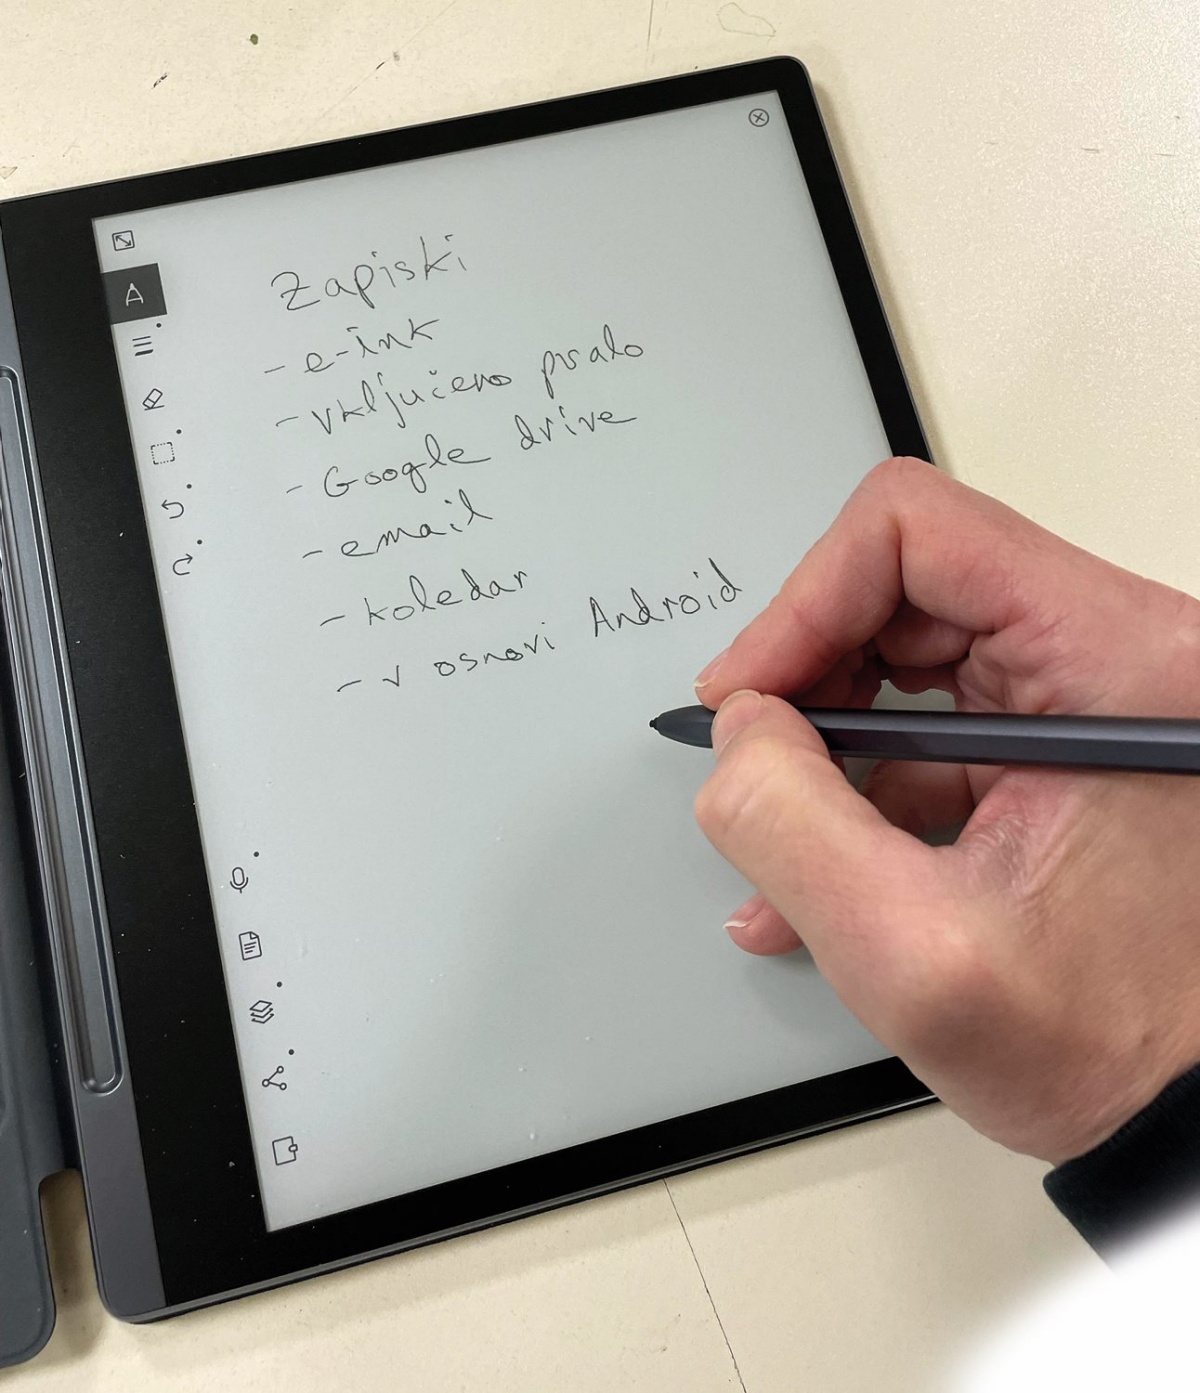 Zapiski
- e-ink
- vključeno pisalo
- Google drive
- email
- koledar
- v osnovi Android